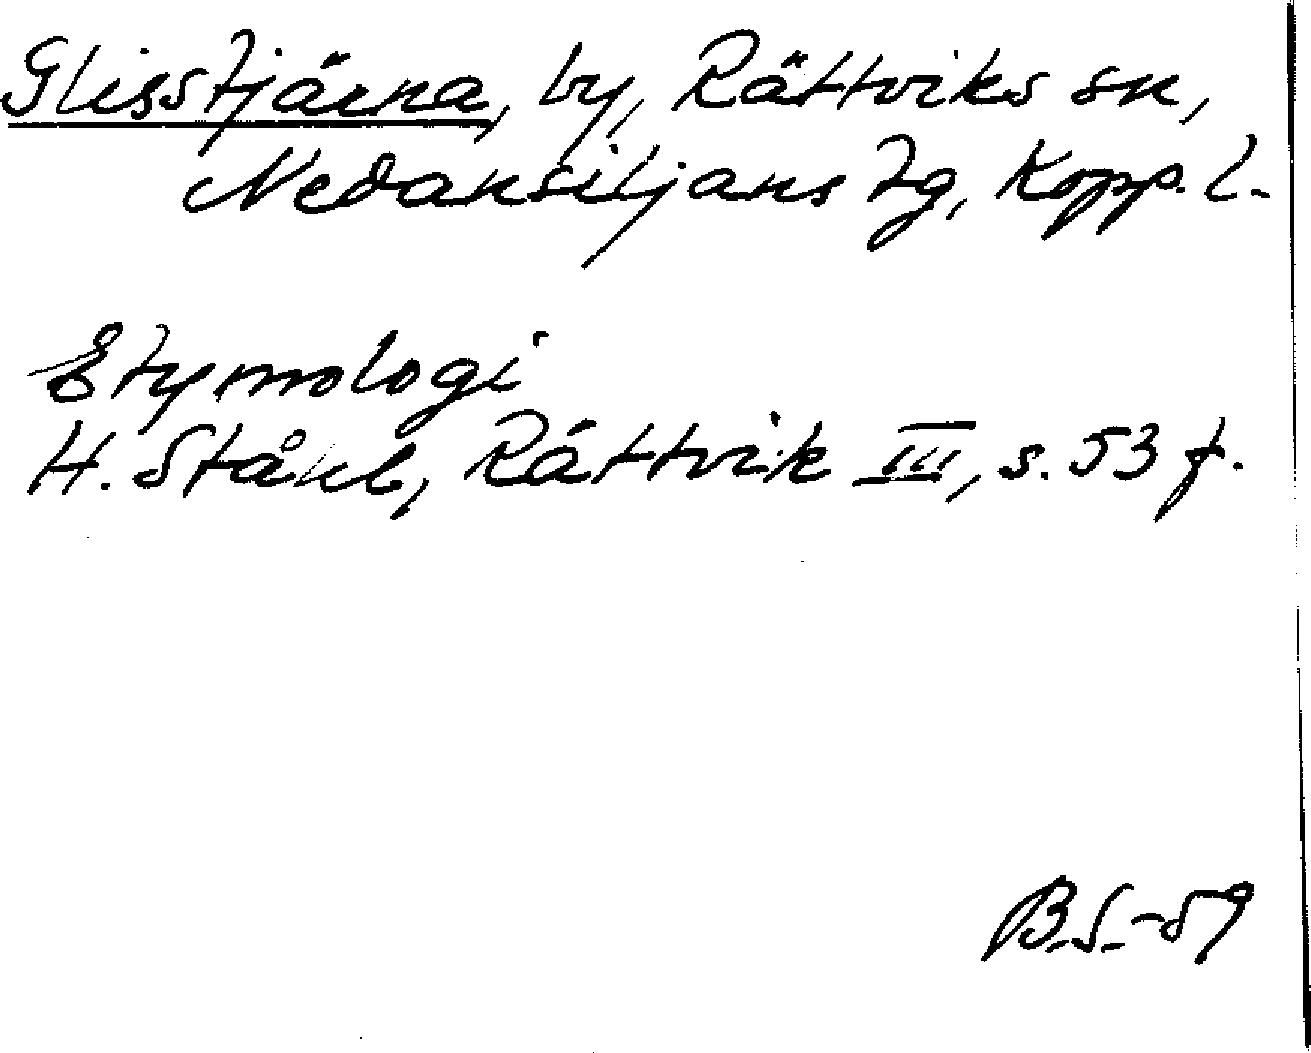 Glisstjärna, by, Rättviks sn,
Nedansiljans tg, Kopp. l.
Etymologi
H. Ståhl, Rättvik III, s. 53 f.
B.S.-59